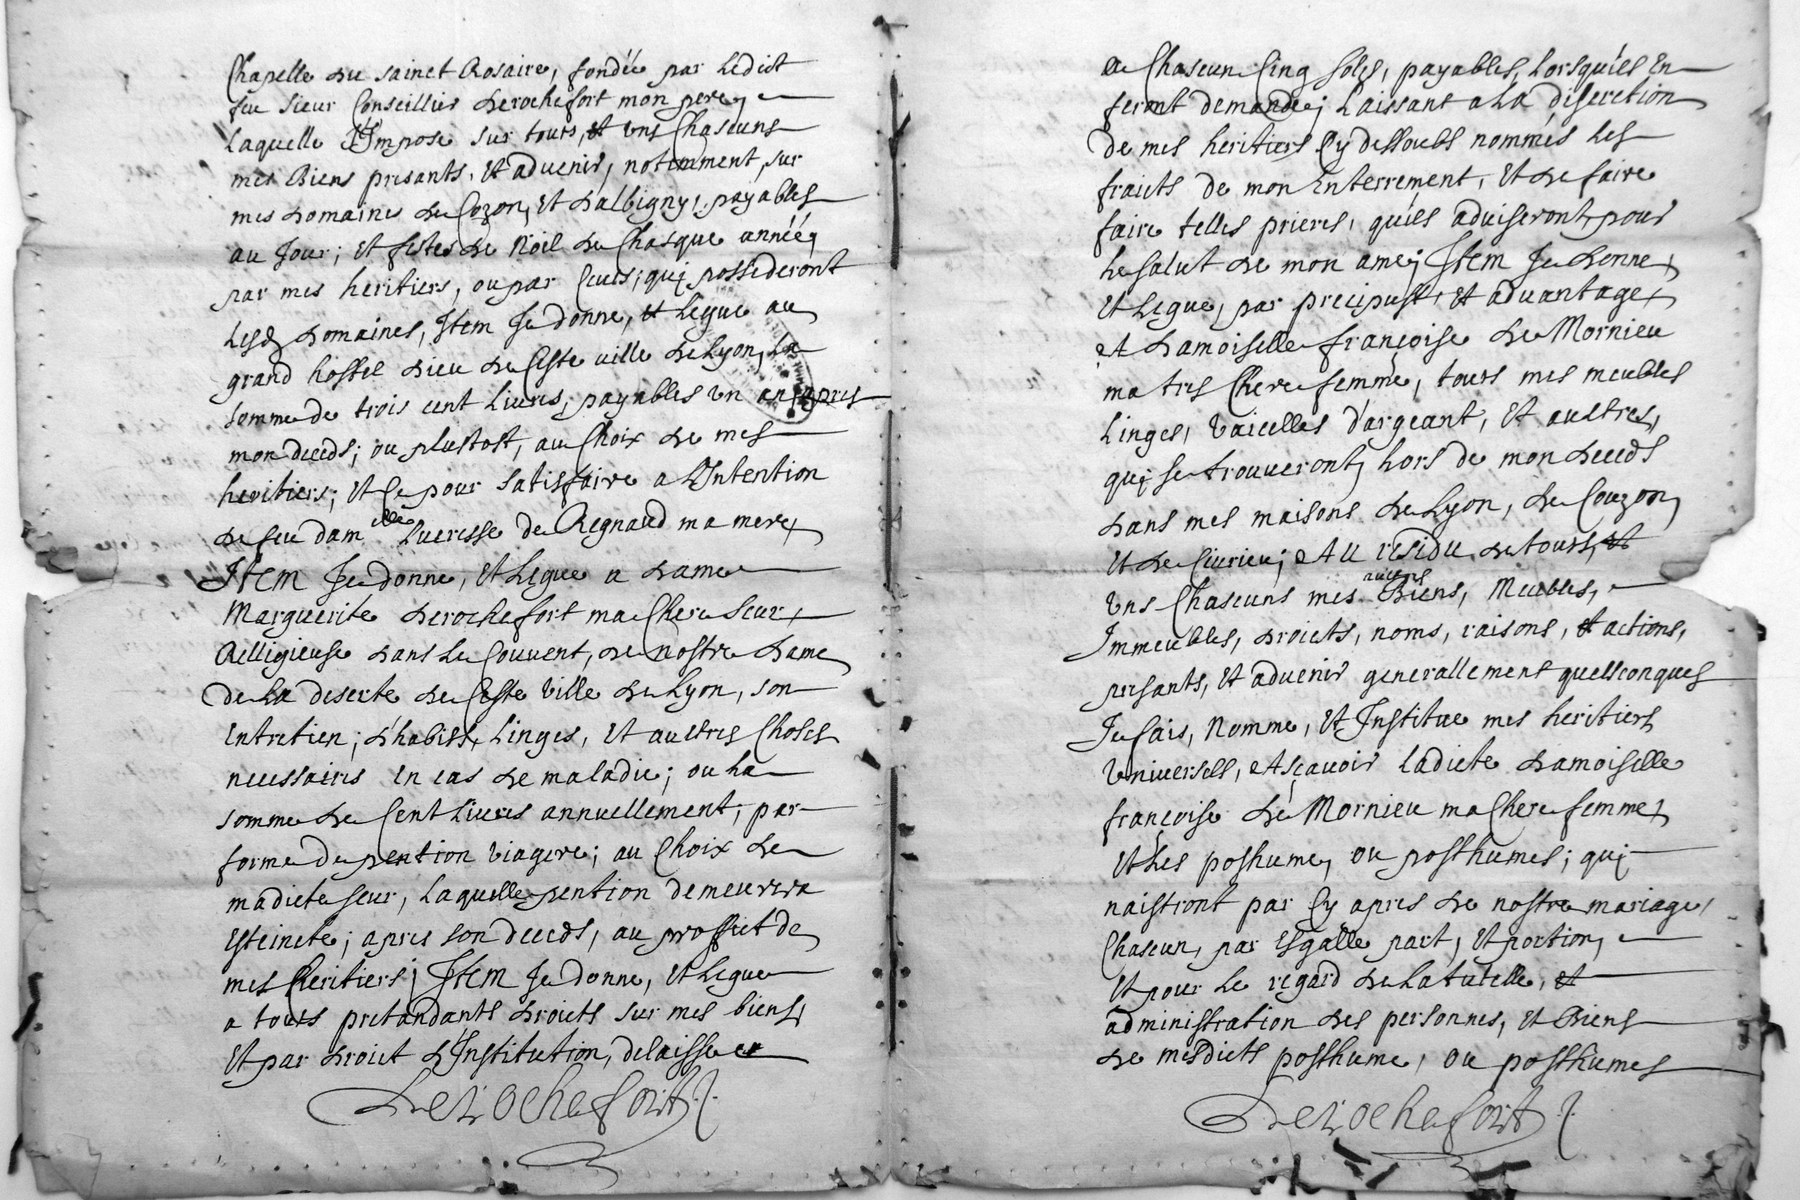 Chapelle du sainct Rosaire, fondée par Ledict
feu sieur Conseillier Derochefort mon pere,
Laquelle J'Impose sur touts, et uns Chascuns
mes Biens presants, Et advenir, notemment, sur
mes domaines de Cozon, Et d'albigny, payables
au Jour, Et festes de Noël de Chasque année,
par mes heritiers, ou par Ceux, qui possederont
Lesd domaines, Item Je donne, et Legue au
grand hostel dieu de Ceste ville de Lyon, La
somme de trois cent Livres, payables un an apres
mon deceds; ou plustost, au Choix de mes
heritiers; Et Ce pour satisfaire a L'Intention
de feu dam elle Lucresse de Regnaud ma mere,
Item Je donne, Et Legue a dame
Marguerite Derochefort ma Chere seur,
Relligieuse dans Le Couvent, de nostre dame
de La deserte de Ceste Ville de Lyon, son
Entretien; d'habits, Linges, Et autres Choses
necessaires En cas de maladie; ou La
somme de Cent Livres annuellement, par
forme de pention Viagere; au Choix de
madicte seur, Laquelle pention demeurera
Esteincte; apres son deceds, au proffict de
mes heritiers; Item Je donne, Et Legue
a touts pretandants droicts sur mes biens,
Et par droict d'Institution, delaisse
Derochefort
a Chascun Cinq sols, payables, Lorsqu'ils En
feront demande; Laissant a La discretion
De mes heritiers Cy dessoubs nommés Les
fraicts de mon Enterrement, Et de faire
faire telles prieres, qu'ils adviseront, pour
Le salut de mon ame; Item Je donne,
Et Legue, par precipust, Et advantage,
A damoiselle françoise de Mornieu
ma tres Chere femme, touts mes meubles
Linges, Vaicelles d'argeant, Et aultres,
qui se trouveront, hors de mon deceds
dans mes maisons de Lyon, de Couzon,
Et de Civrieu; Au residu de touts, et
uns Chascuns mes aultres Biens, Meubles,
Immeubles, droicts, noms, raisons, et actions,
presants, Et advenir generallement quelsconques
Je fais, Nomme, Et Institue mes heritiers
Universels, A sçavoir Ladicte damoiselle
françoise de Mornieu ma Chere femme,
Et Les poshume, ou posthumes; qui
naistront par Cy apres de nostre mariage,
Chascun, par Esgalle part, Et portion,
Et pour Le regard de La tutelle, et
administration des personnes, Et Biens
de mesdicts posthume, ou posthumes
Derochefort